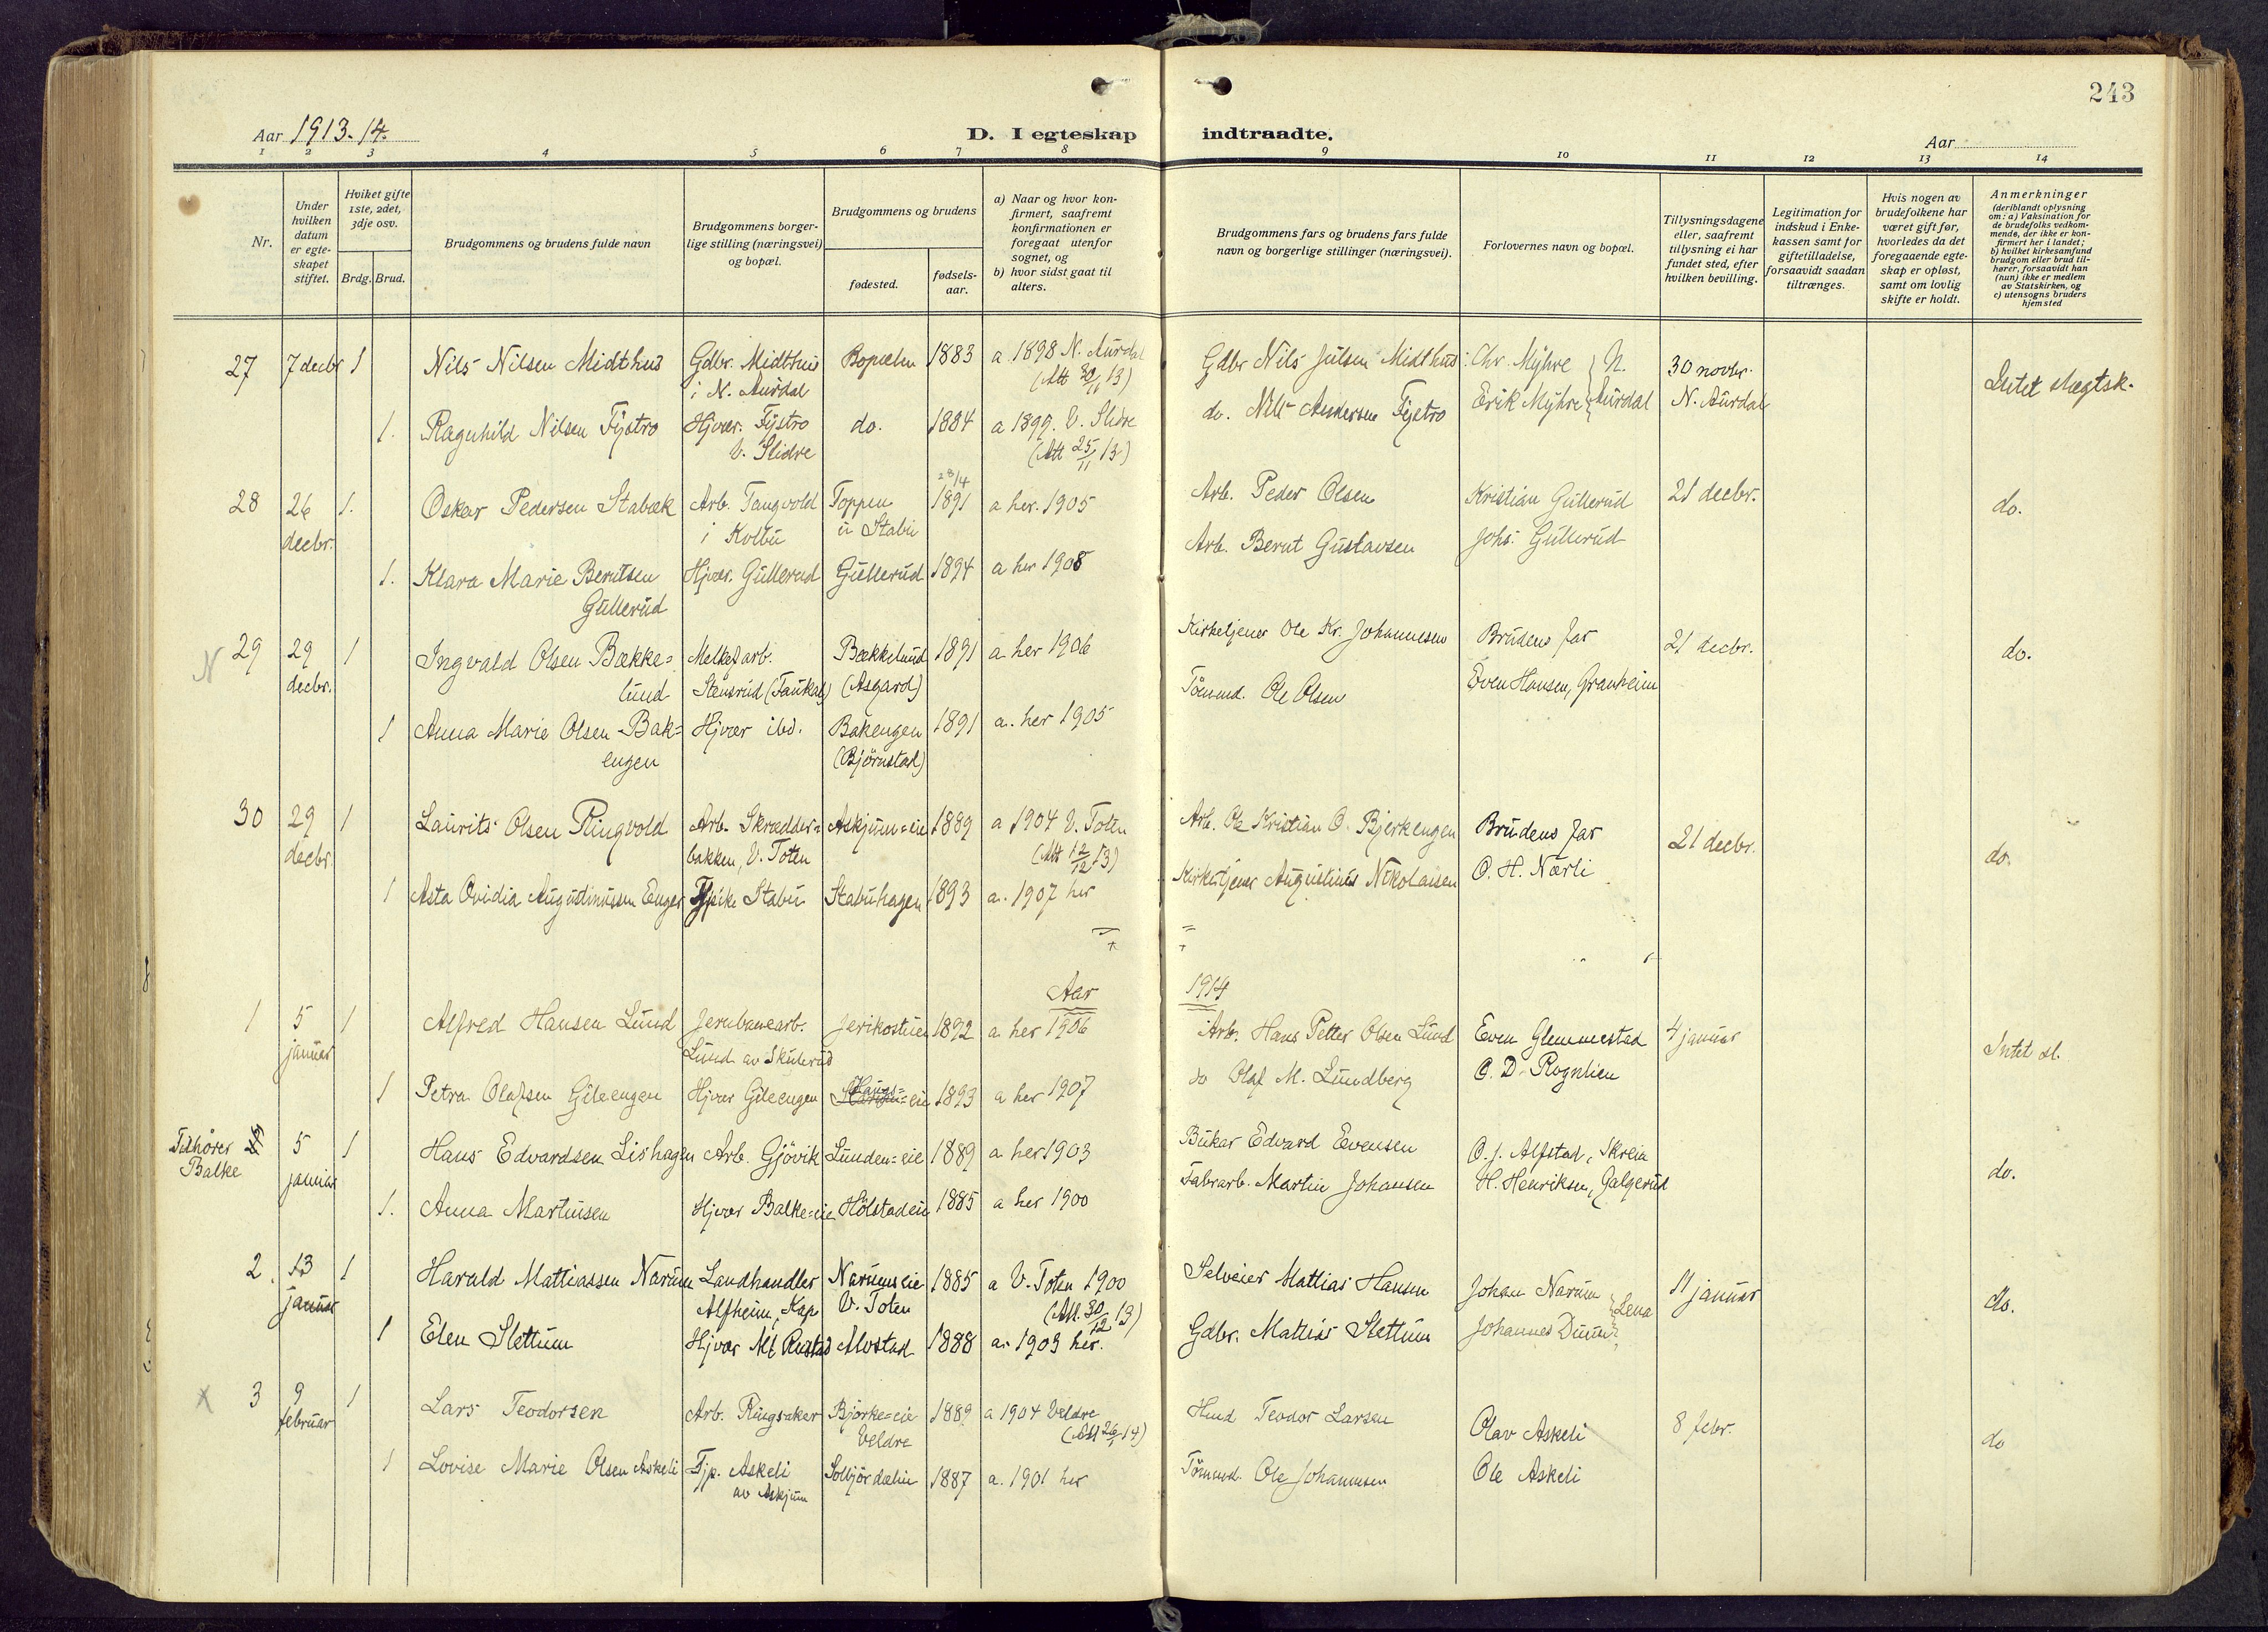 243
Aar 1913-14.
D. I egteskap indtraadte.
Aar
1 2 3 4 5 6 7 8 9 10 11 12 13 14
Nr.
Under hvilken datum er egteskapet stiftet.
Hvilket gifte 1ste, 2det, 3dje osv.
Brdg. Brud.
Brudgommens og brudens fulde navn
Brudgommens borgerlige stilling (næringsvei) og bopæl.
Brudgommens og brudens
fødested.
fødselsaar.
a) Naar og hvor konfirmert, saafremt konfirmationen er foregaat utenfor sognet, og
b) hvor sidst gaat til alters.
Brudgommens fars og brudens fars fulde navn og borgerlige stillinger (næringsvei).
Forlovernes navn og bopæl.
Tillysningsdagene eller, saafremt tillysning ei har fundet sted, efter hvilken bevilling.
Legitimation for indskud i Enkekassen samt for giftetilladelse, forsaavidt saadan tiltrænges.
Hvis nogen av brudefolkene har været gift før, hvorledes da det foregaaende egteskap er opløst, samt om lovlig skifte er holdt.
Anmerkninger
(deriblandt oplysning om: a) Vaksination for de brudefolks vedkommende, der ikke er konfirmert her i landet; b) hvilket kirkesamfund brudgom eller brud tilhører, forsaavidt han (hun) ikke er medlem av Statskirken, og c) utensogns bruders hjemsted
27 7 decbr 1 Nils Nilsen Midthus Gdbr. Midthus Bopælen 1883 a. 1898 N. Aurdal Gdbr Nils Julsen Midthus Chr. Myhre N. 30 novbr. Intet slegtsk.
i N. Aurdal (Att 30/11 13) Erik Myhre Aurdal N. Aurdal
1. Ragnhild Nilsen Fystro Hjvær. Fystro do. 1884 a 1899. V. Slidre do. Nils Andersen Fystro
V. Slidre (Att 25/11 13)
28/4
28 26 1. Oskar Pedersen Stabæk Arb. Tangvold Toppen 1891 a her. 1905 Arb. Peder Olsen Kristian Gullerud 21 decbr. do.
decbr. i Kolbu u Stabu Arb. Bernt Gustavsen Johs. Gullerud
1. Klara Marie Berntsen Hjvær. Gullerud Gullerud 1894 a her 1908
Gullerud
N 29 29 1 Ingvald Olsen Bække= Melkef arb. Bækkelund 1891 a her 1906 Kirketjener Ole Kr. Johannesen Brudens far 21 decbr. do.
decbr. lund Stensrud (Faukal) (Asgard) Tömmd. Ole Olsen Even Hansen, Granheim
1 Anna Marie Olsen Bak= Hjvær ibd. Bakengen 1891 a. her 1905
engen (Björnstad)
30 29 1 Laurits Olsen Ringvold Arb. Skrædder= Askjum=eie 1889 a 1904 V. Toten Arb. Ole Kristian O. Bjerkengen Brudens far 21 decbr. do.
decbr. bakken, V. Toten (Att 12/12 13) O. H. Nærli
1 Asta Ovidia Augustinussen Enger Stabu Stabuhagen 1893 a. 1907 her Kirketjener Augustinus Nikolaisen
Aar 1914
1 5 1 Alfred Hansen Lund Jernbanearb. Jerikostuen 1892 a her 1906 Arb. Hans Petter Olsen Lund Even Glemmestad 4 januar Intet sl.
januar Lund av Skulerud
1 Petra Olafsen Gileengen Hjvær Gileengen Haugs=eie 1893 a her 1907 do Olaf M. Lundberg O. D. Rognlien
Tilhører 5 1 Hans Edvardsen Lishagen Arb. Gjövik Lunden=eie 1889 a her 1903 Edvard Evensen O. J. Alfstad, Skreia do.
Balke januar
1. Anna Martinsen Hjvær Balke=eie Hölstadeie 1885 a her 1900 Fabrarb. Martin Johansen H. Henriksen, Galgerud
2. 13 1 Harald Mattiassen Narum Landhandler Narumseie 1885 a V. Toten 1900 Selveier Mattias Hansen Johan Narum Lena 11 januar do.
januar Alfheim, Kap V. Toten (Att. 30/12 13)
1 Elen Slettum Hjvær Alf Rustad Alvstad 1888 a. 1903 her. Gdbr. Mattias Slettum Johannes
x 3 9 1 Lars Teodorsen Arb. Ringsaker Bjørke=eie 1889 a 1904 Veldre Hmd Teodor Larsen Olav Askeli 8 febr. do
februar Veldre (Att 26/1 14)
1 Lovise Marie Olsen Askeli Tjp. Askeli 1887 a. 1901 her Tömmd. Ole Johannesen Ole Askeli
av Askjum